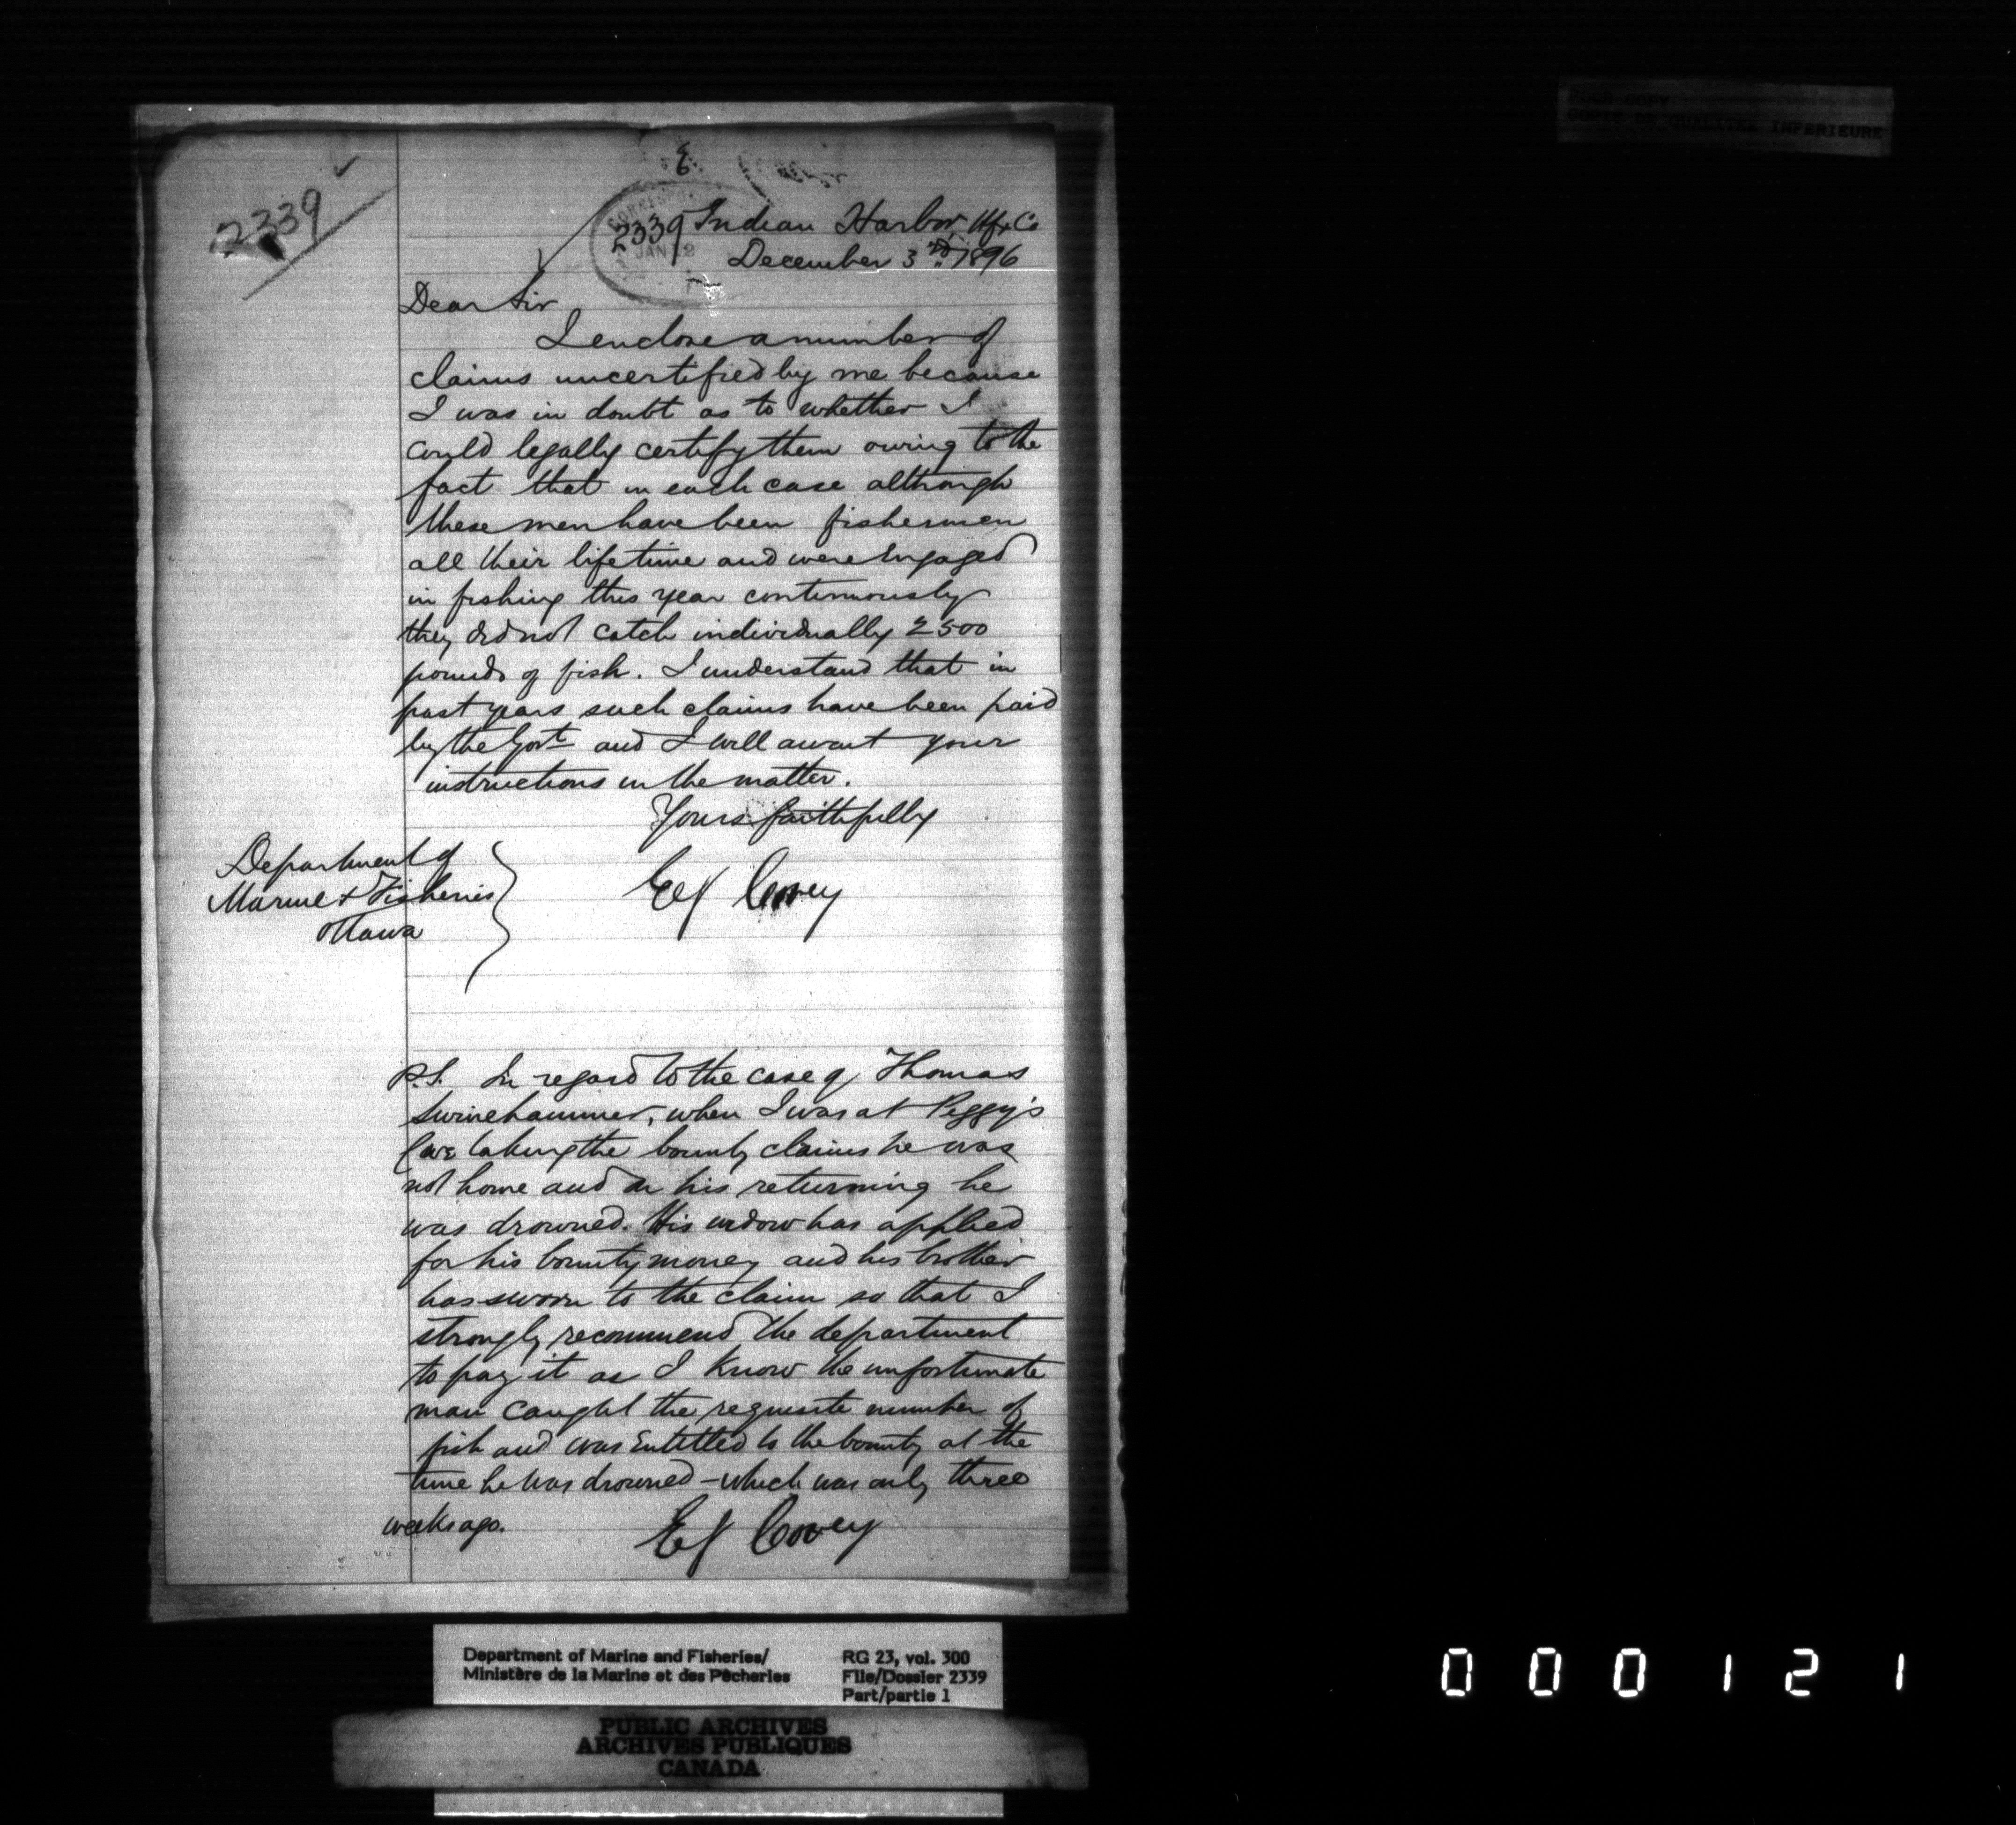 POOR COPY
COPIE DE QUALITEE INFERIEURE
2339
2339 Indian Harbor, Hfx Co
JAN 12
December 3rd 1896
Dear Sir
I enclose a number of
claims uncertified by me because
I was in doubt as to whether I
could legally certify them owing to the
fact that in each case although
these men have been fishermen
all their lifetime and were Engaged
in fishing this year continuously
they did not catch individually 2500
pounds of fish. I understand that in
past years such claims have been paid
by the Govt and I will await your
instructions in the matter.
Yours faithfully
Department of
Marine & Fisheries
Ottawa
EJ Covey
P.S. In regard to the case of Thomas
Swinehammer, when I was at Peggy's
Cove taking the bounty claims he was
not home and on his returning he
was drowned. His widow has applied
for his bounty money and his brother
has sworn to the claim so that I
strongly recommend the department
to pay it as I know the unfortunate
man caught the requisite number of
fish and was Entitled to the bounty at the
time he was drowned - which was only three
weeks ago.
EJ Covey
Department of Marine and Fisheries/
Ministère de la Marine et des Pêcheries
RG 23, vol. 300
File/Dossier 2339
Part/partie 1
PUBLIC ARCHIVES
ARCHIVES PUBLIQUES
CANADA
000121